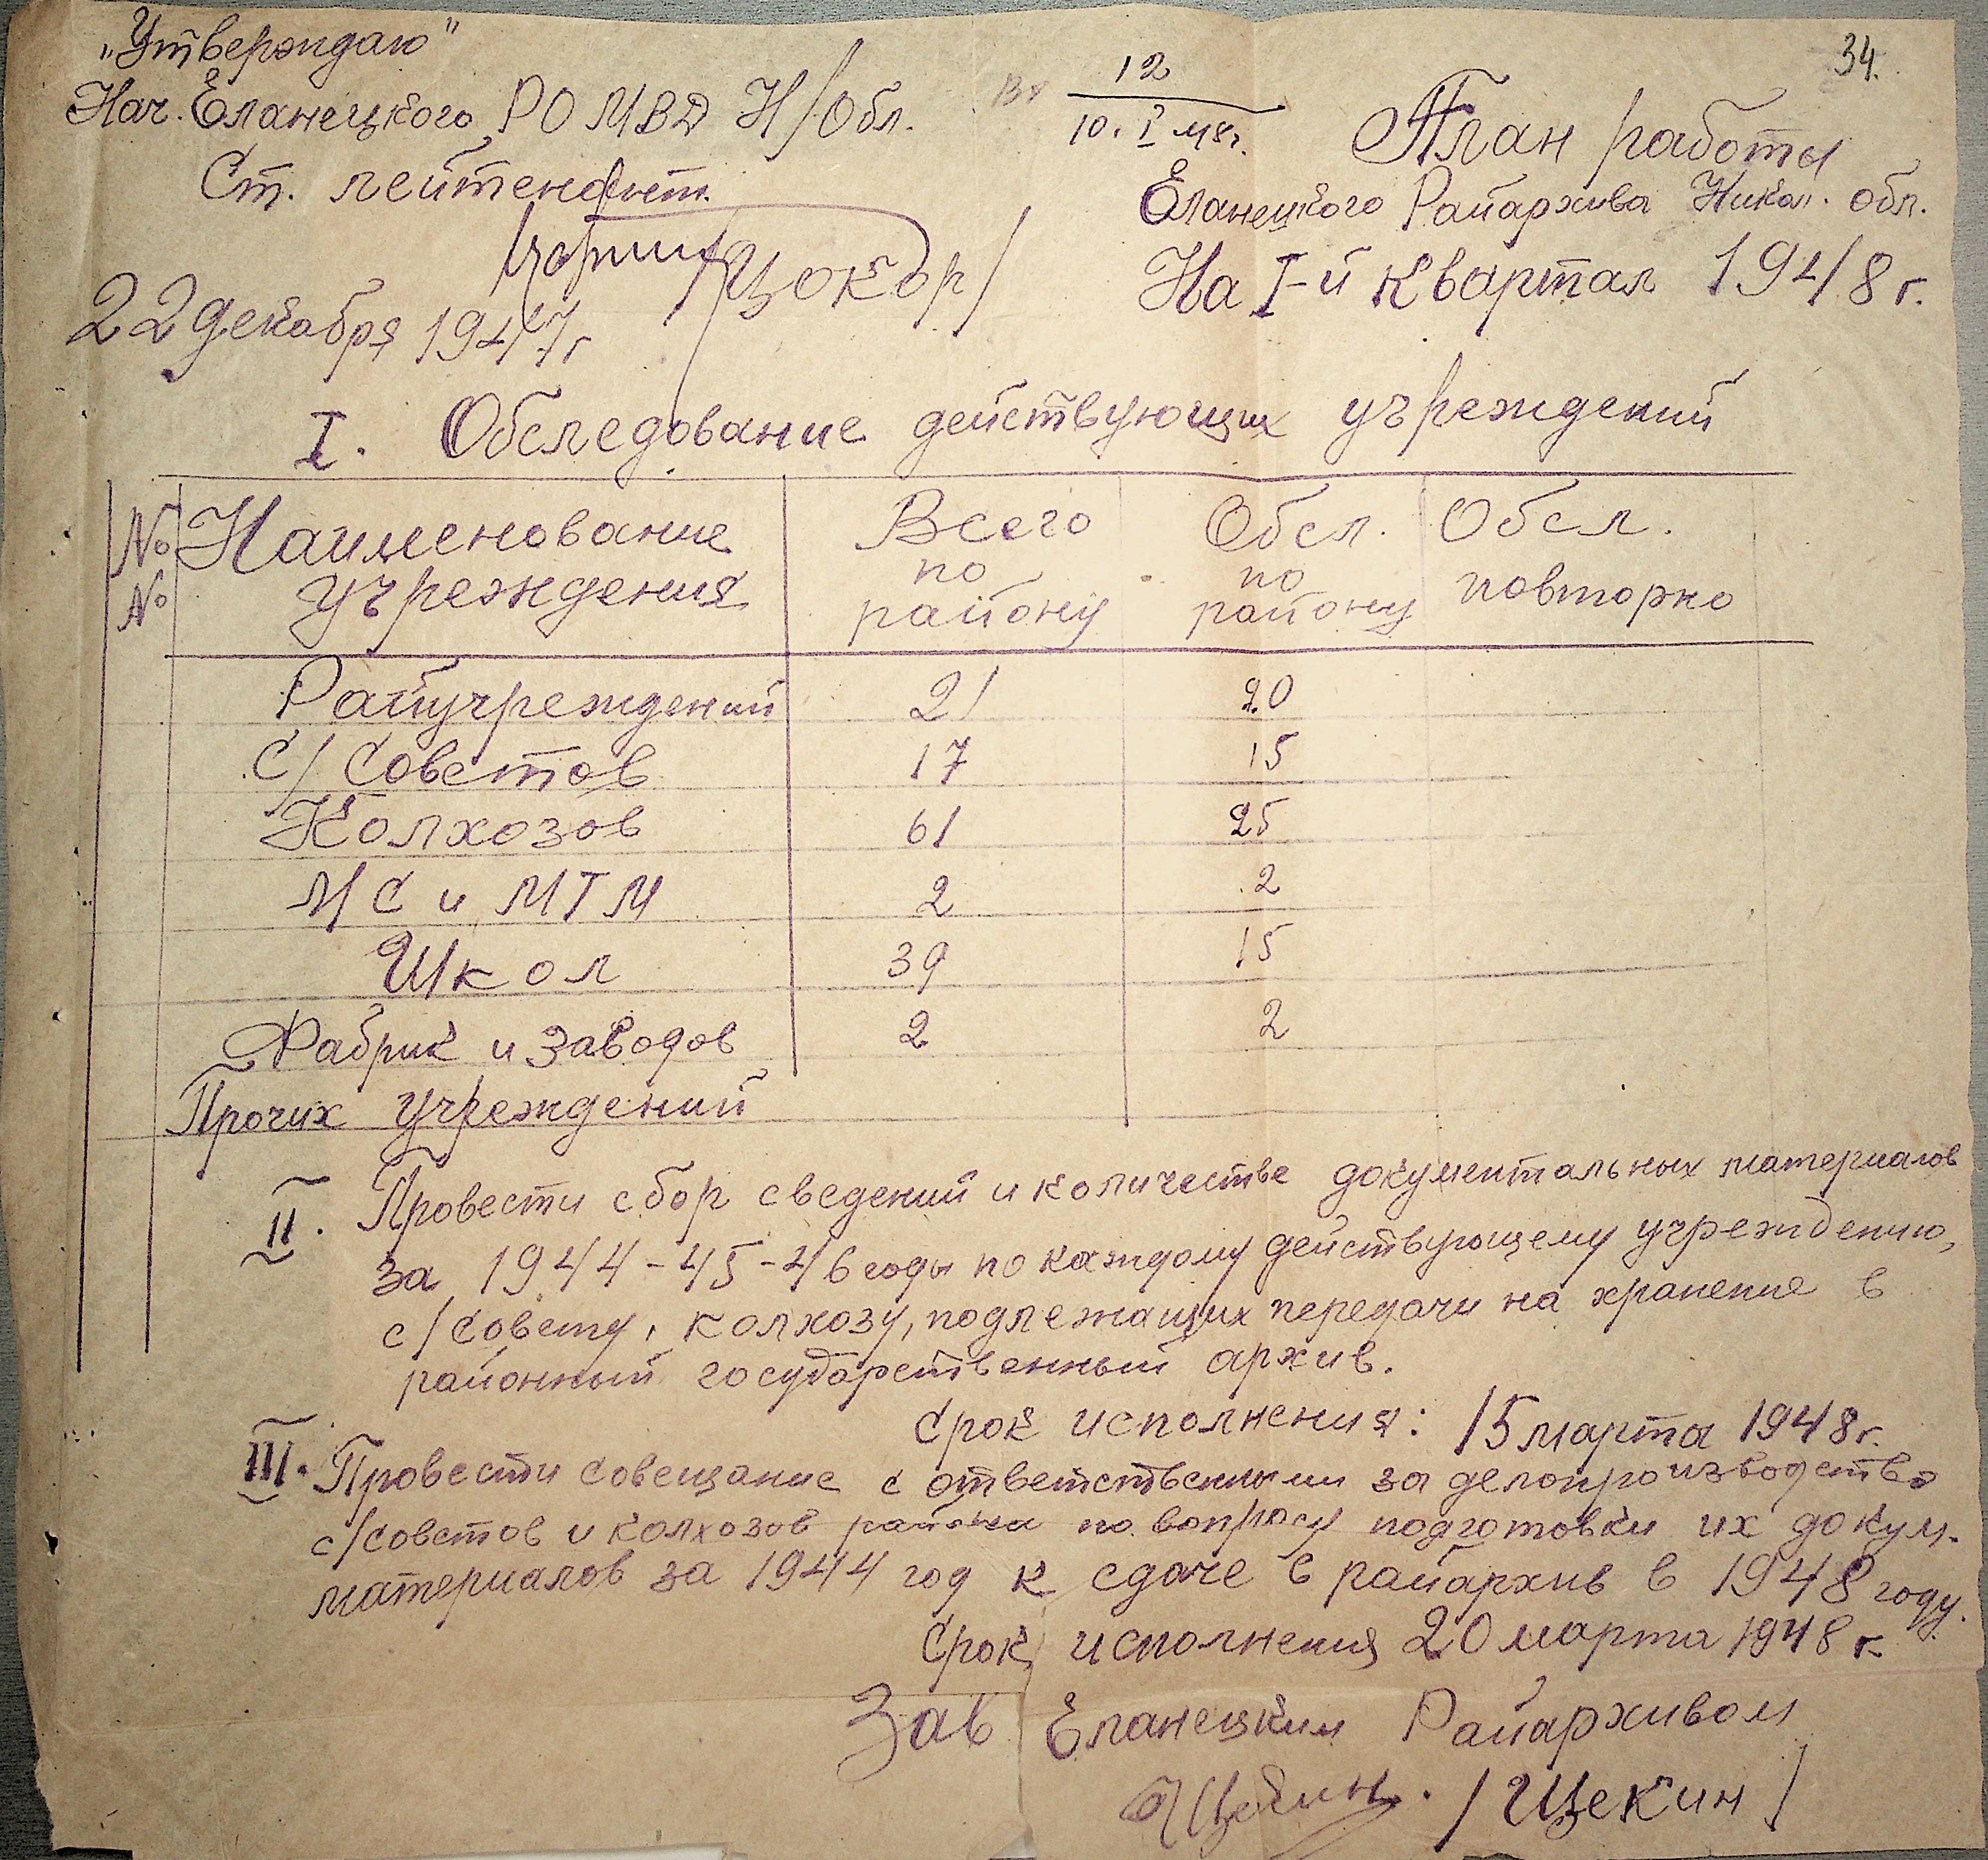 „Утверждаю"
Нач. Еланецкого РО МВД Н/Обл.
Ст. лейтенант.
/Цокор/
22 декабря 1947 г
12
10. I 48 г.
34.
План работы
Еланецкого Райархива Никол. обл.
На I-й квартал 1948 г.
I. Обследование действующих учреждений
№ Наименование Всего Обсл. Обсл.
№ учреждения по по повторно
району району
Райучреждений 21 20
С/Советов 17 15
Колхозов 61 25
МС и МТМ 2 2
Школ 39 15
Фабрик и заводов 2 2
Прочих учреждений
II. Провести сбор сведений и количестве документальных материалов
за 1944-45-46 годы по каждому действующему учреждению,
с/совету, колхозу, подлежащих передачи на хранение в
районный государственный архив.
Срок исполнения: 15 марта 1948 г.
III. Провести совещание с ответственными за делопроизводство
с/советов и колхозов района по вопросу подготовки их докум.
материалов за 1944 год к сдаче в райархив в 1948 году.
Срок исполнения 20 марта 1948 г.
Зав Еланецким Райархивом
/Щекин/